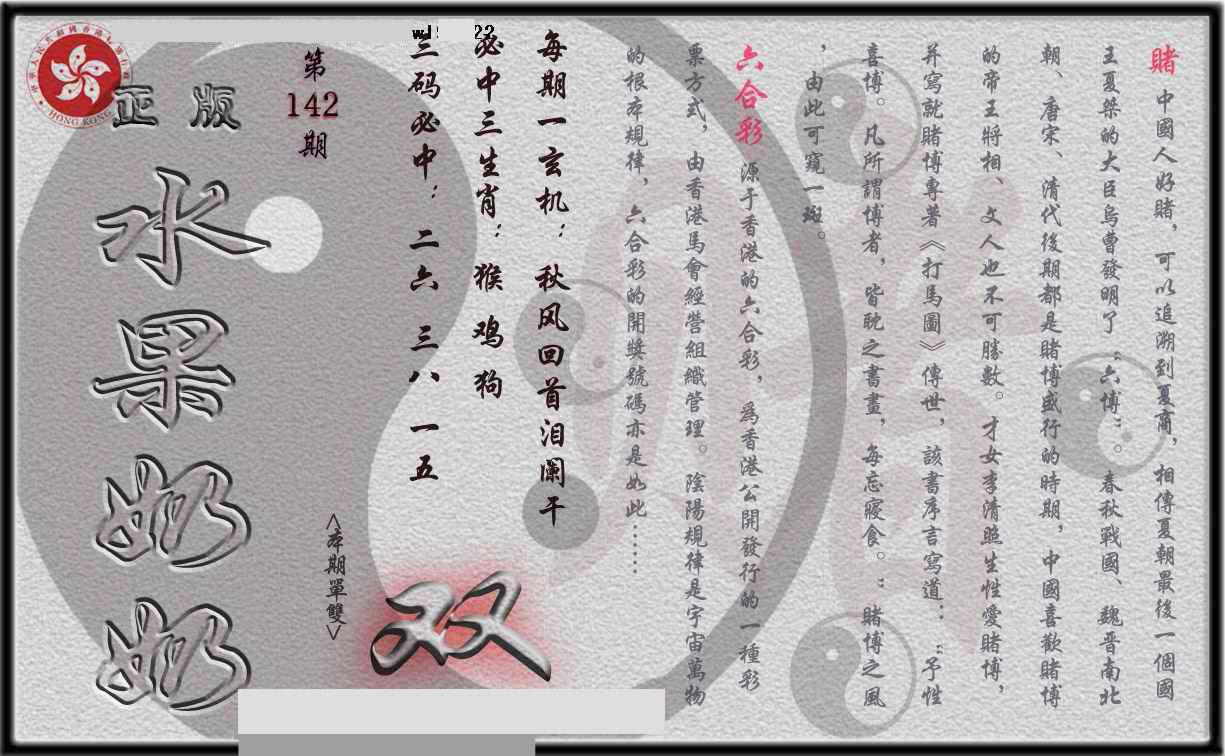 賭 中國人好賭，可以追溯到夏商，相傳夏朝最後一個國
王夏桀的大臣烏曹發明了“六博”。春秋戰國、魏晋南北
朝、唐宋、清代後期都是賭博盛行的時期，中國喜歡賭博
的帝王將相、文人也不可勝數。才女李清照生性愛賭博，
并寫就賭博專著《打馬圖》傳世，該書序言寫道：“予性
喜博。凡所謂博者，皆耽之書畫，每忘寢食。”賭博之風
，由此可窺一斑。
六合彩 源于香港的六合彩，爲香港公開發行的一種彩
票方式，由香港馬會經營組織管理。陰陽規律是宇宙萬物
的根本規律，六合彩的開獎號碼亦是如此……
每期一玄机：秋风回首泪阑干
必中三生肖：猴 鸡 狗
三码必中：二六 三八 一五
第142期
<本期單雙>
双
正版
水果奶奶
HONG KONG